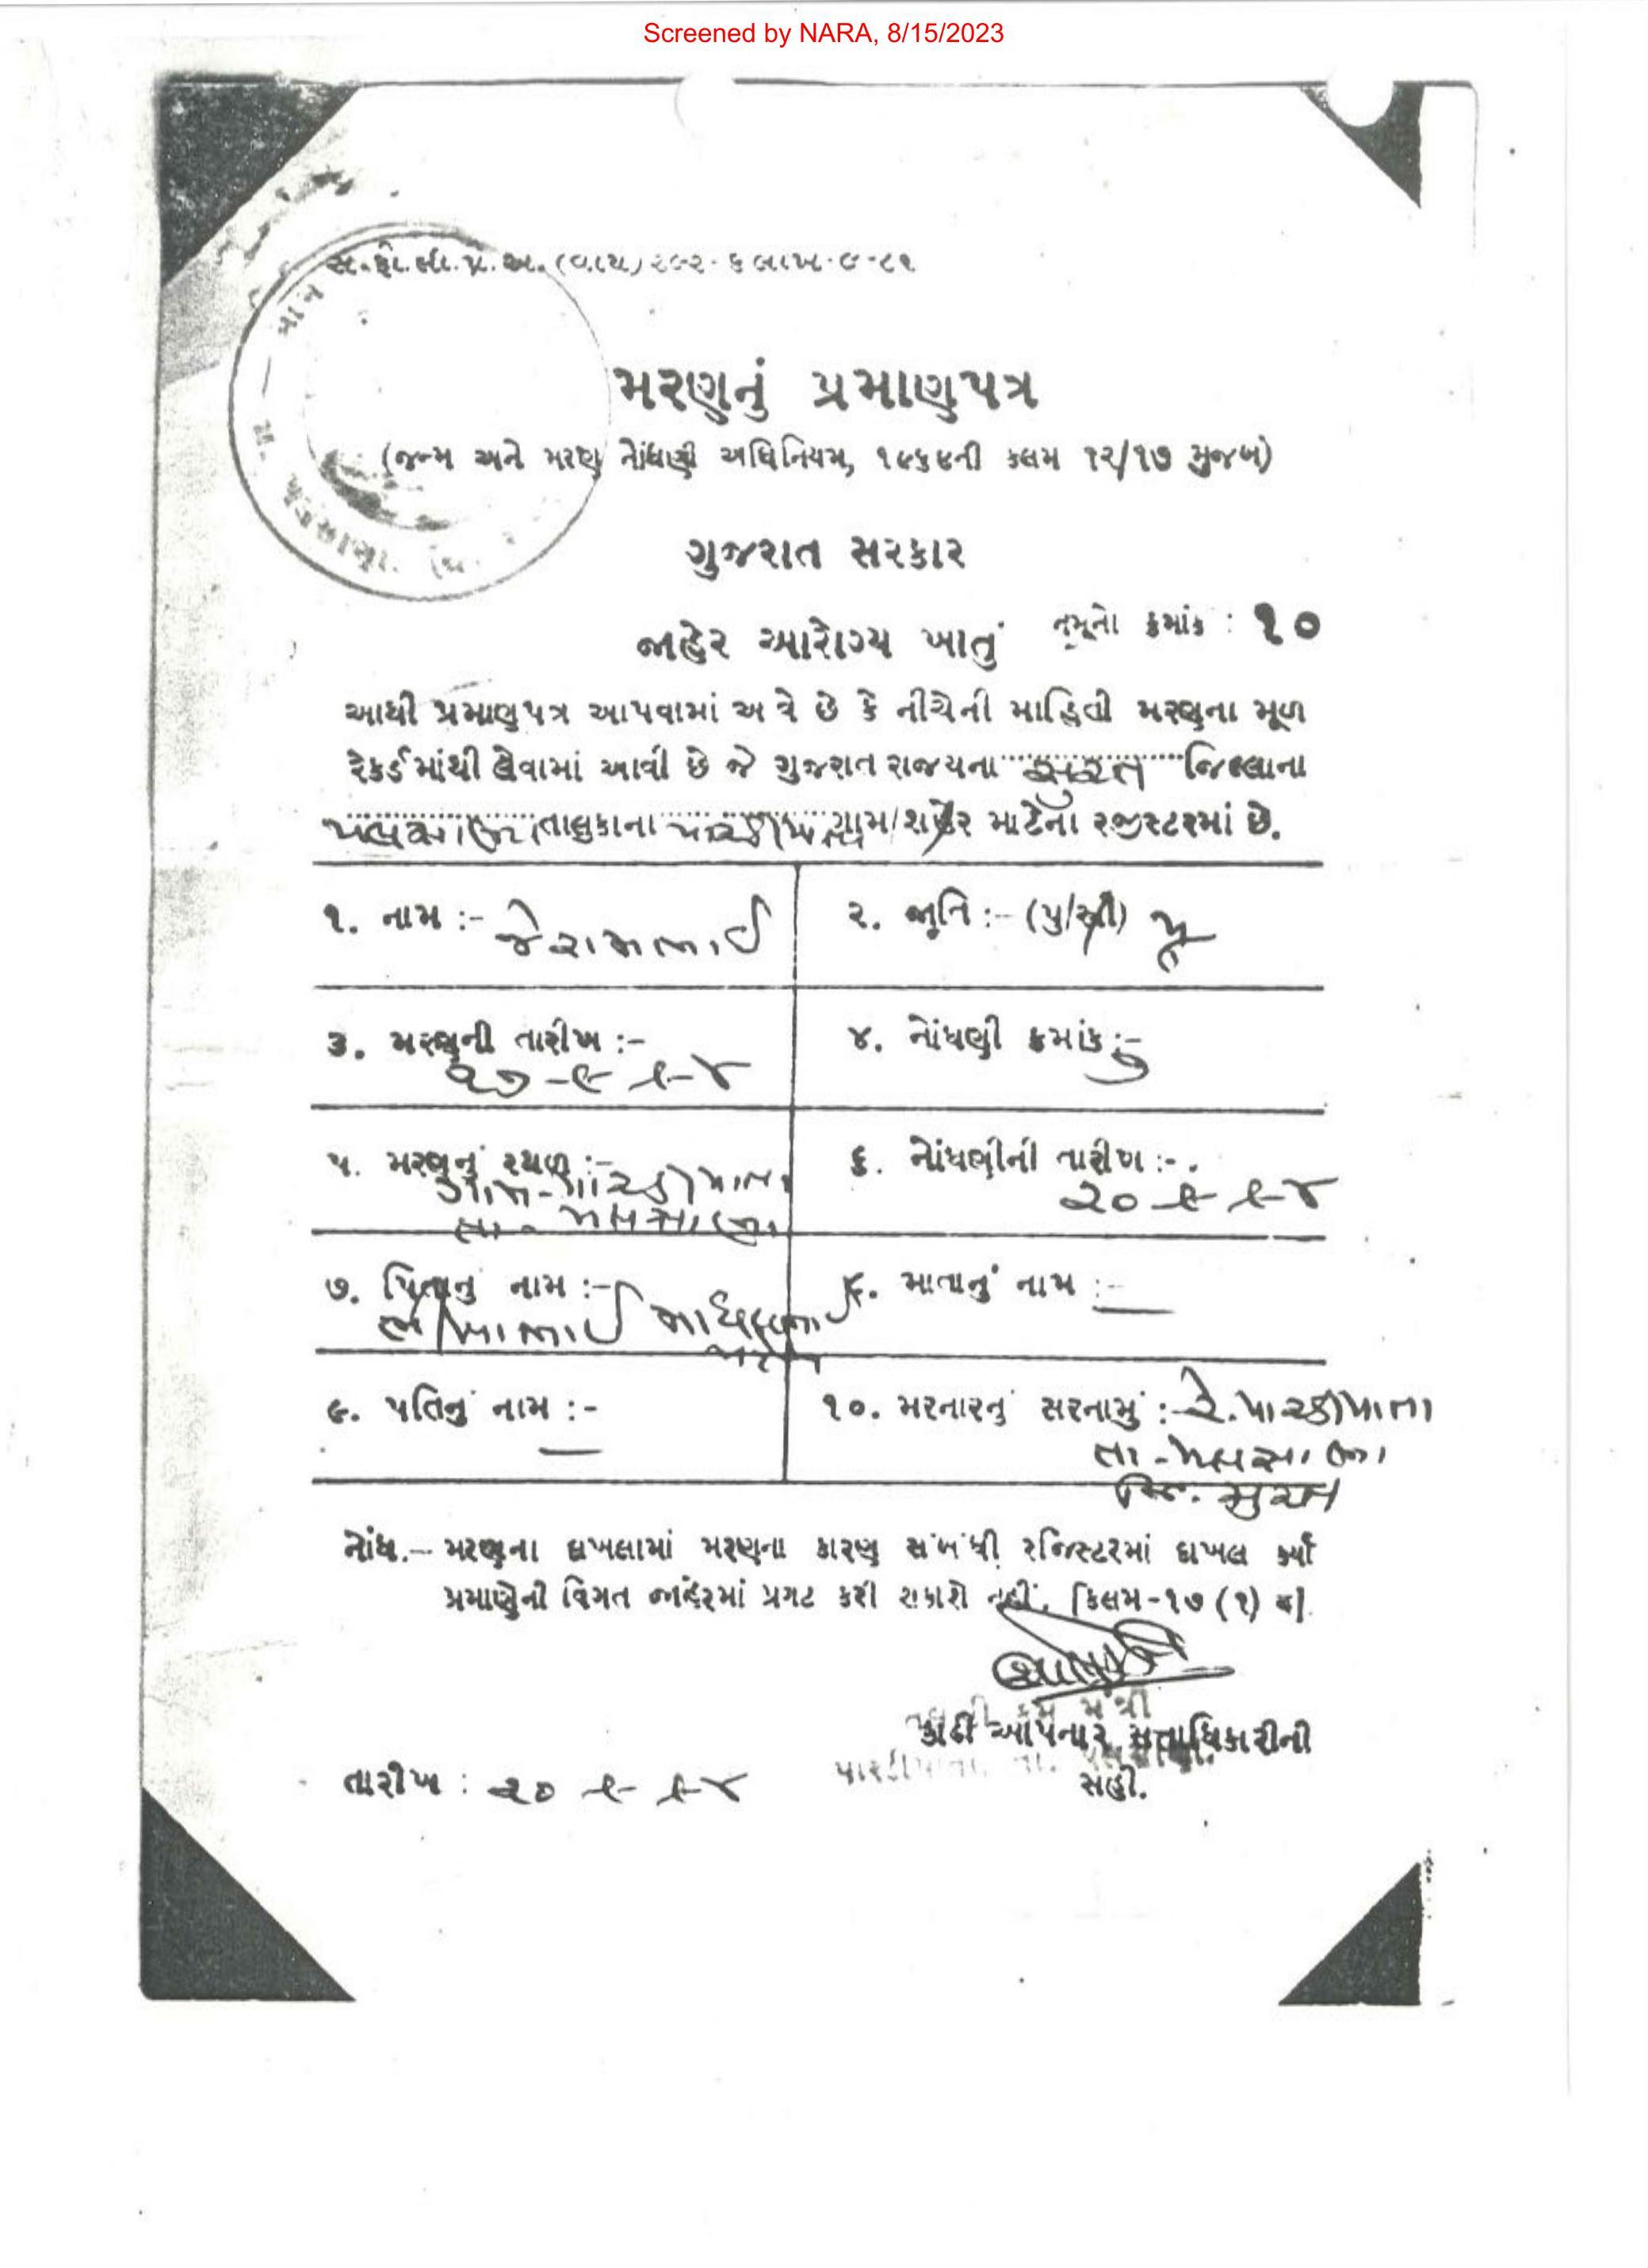 Screened by NARA, 8/15/2023
સ.ફો.લી.પ્રે.અ. (વાય) ૨૯૨- ૬ લાખ-૯-૮૧
મરણનું પ્રમાણપત્ર
(જન્મ અને મરણ નોંધણી અધિનિયમ, ૧૯૬૯ની કલમ ૧૨/૧૭ મુજબ)
ગુજરાત સરકાર
જાહેર આરોગ્ય ખાતું નમૂનો ક્રમાંક : ૧૦
આથી પ્રમાણપત્ર આપવામાં આવે છે કે નીચેની માહિતી મરણના મૂળ
રેકર્ડમાંથી લેવામાં આવી છે જે ગુજરાત રાજયના સુરત જિલ્લાના
પલસાણા તાલુકાના પારડીપાતા ગામ/શહેર માટેના રજીસ્ટરમાં છે.
૧. નામ :- જેરામભાઈ
૨. જાતિ :- (પુ/સ્ત્રી) પુ
૩. મરણની તારીખ :-
૧૭-૯-૯૪
૪. નોંધણી ક્રમાંક :- ૭
૫. મરણનું સ્થળ :-
ગામ-પારડીપાતા
તા. પલસાણા
૬. નોંધણીની તારીખ :-
૨૦-૯-૯૪
૭. પિતાનું નામ :-
ભીખાભાઈ
૮. માતાનું નામ :-
૯. પતિનું નામ :-
૧૦. મરનારનું સરનામું :- રે. પારડીપાતા
તા-પલસાણા
જિ. સુરત
નોંધ.— મરણના દાખલામાં મરણના કારણ સંબંધી રજિસ્ટરમાં દાખલ કર્યા
પ્રમાણેની વિગત જાહેરમાં પ્રગટ કરી શકાશે નહીં. [કલમ-૧૭ (૧) ક].
તલાટી કમ મંત્રી
કાઢી આપનાર સત્તાધિકારીની
પારડીપાતા, તા. પલસાણા.
સહી.
તારીખ : ૨૦-૯-૯૪